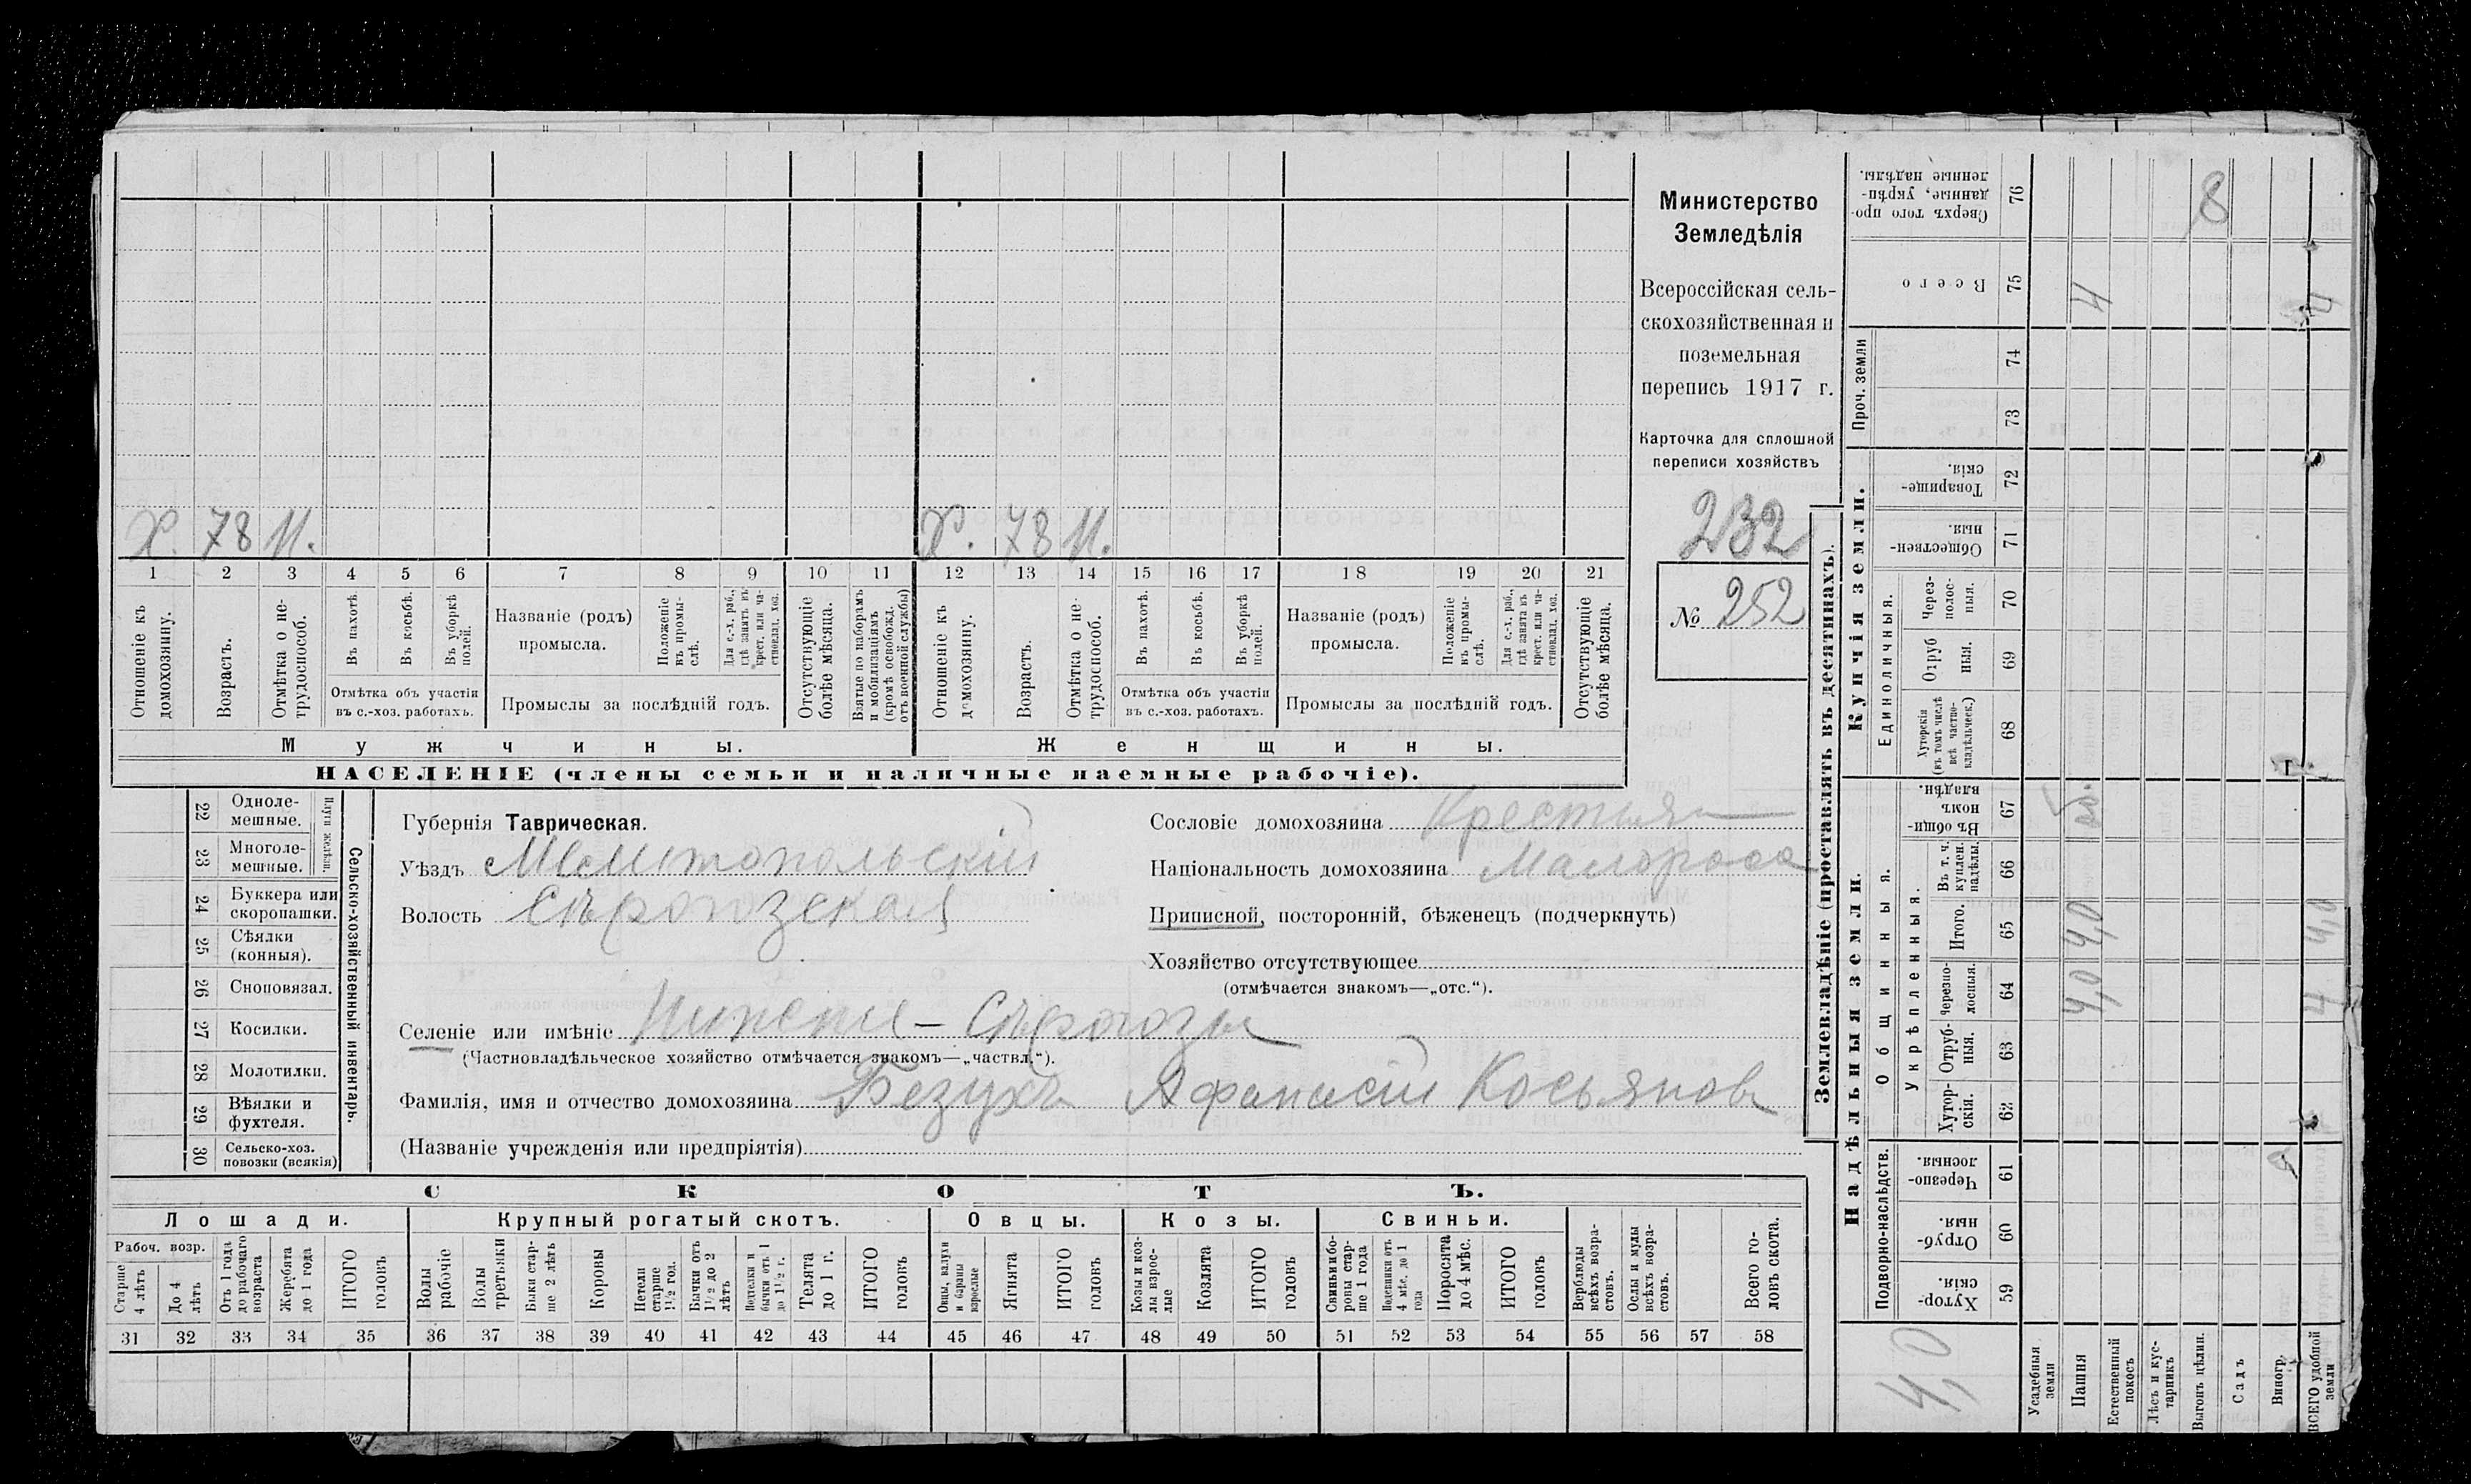 Министерство
Земледѣлія
Всероссійская сель-
скохозяйственная и
поземельная
перепись 1917 г.
Карточка для сплошной
переписи хозяйствъ
232
№ 252
Х. 78 Н. Х. 78 Н.
1 2 3 4 5 6 7 8 9 10 11 12 13 14 15 16 17 18 19 20 21
Отношеніе къ домохозяину.
Возрастъ.
Отмѣтка о не-трудоспособ.
Въ пахотѣ.
Въ косьбѣ.
Въ уборкѣ полей.
Отмѣтка объ участіи
въ с.-хоз. работахъ.
Названіе (родъ)
промысла.
Положеніе въ промы-слѣ.
Для с.-х. раб., гдѣ занятъ въ крест. или ча-стновлад. хоз.
Промыслы за послѣдній годъ.
Отсутствующіе болѣе мѣсяца.
Взятые по наборамъ и мобилизаціямъ (кромѣ освобожд. отъ военной службы)
Отношеніе къ домохозяину.
Возрастъ.
Отмѣтка о не-трудоспособ.
Въ пахотѣ.
Въ косьбѣ.
Въ уборкѣ полей.
Отмѣтка объ участіи
въ с.-хоз. работахъ.
Названіе (родъ)
промысла.
Положеніе въ промы-слѣ.
Для с.-х. раб., гдѣ занята въ крест. или ча-стновлад. хоз.
Промыслы за послѣдній годъ.
Отсутствующіе болѣе мѣсяца.
Мужчины. Женщины.
НАСЕЛЕНІЕ (члены семьи и наличные наемные рабочіе).
Сельско-хозяйственный инвентарь.
Плуги желѣзн.
22 Одноле-мешные.
23 Многоле-мешные.
24 Буккера или скоропашки.
25 Сѣялки (конныя).
26 Сноповязал.
27 Косилки.
28 Молотилки.
29 Вѣялки и фухтеля.
30 Сельско-хоз. повозки (всякія)
Губернія Таврическая.
Уѣздъ Мелитопольскій
Волость Сѣрогозская
Селеніе или имѣніе Нижніе-Сѣрогозы
(Частновладѣльческое хозяйство отмѣчается знакомъ—„частвл.“).
Фамилія, имя и отчество домохозяина Безухъ Афанасій Косьяновъ
(Названіе учрежденія или предпріятія)
Сословіе домохозяина Крестьян
Національность домохозяина Малоросс
Приписной, посторонній, бѣженецъ (подчеркнуть)
Хозяйство отсутствующее
(отмѣчается знакомъ—„отс.“).
СКОТЪ.
Лошади. Крупный рогатый скотъ. Овцы. Козы. Свиньи.
Рабоч. возр.
Старше 4 лѣтъ
До 4 лѣтъ
Отъ 1 года до рабочаго возраста
Жеребята до 1 года
ИТОГО головъ
Волы рабочіе
Волы третьяки
Быки стар-ше 2 лѣтъ
Коровы
Нетели старше 1½ год.
Бычки отъ 1½ до 2 лѣтъ
Подтелки и бычки отъ 1 до 1½ г.
Телята до 1 г.
ИТОГО головъ
Овцы, валухи и бараны взрослые
Ягнята
ИТОГО головъ
Козы и коз-лы взрос-лые
Козлята
ИТОГО головъ
Свиньи и бо-ровы стар-ше 1 года
Подсвинки отъ 4 мѣс. до 1 года
Поросята до 4 мѣс.
ИТОГО головъ
Верблюды всѣхъ возра-стовъ.
Ослы и мулы всѣхъ возра-стовъ.
Всего го-ловъ скота.
31 32 33 34 35 36 37 38 39 40 41 42 43 44 45 46 47 48 49 50 51 52 53 54 55 56 57 58
Землевладѣніе (проставлять въ десятинахъ).
Надѣльныя земли. Купчія земли.
Проч. земли
Подворно-наслѣдств.
Общинныя.
Укрѣпленныя.
Единоличныя.
Хутор-скія. 59
Отруб-ныя. 60
Черезпо-лосныя. 61
Хутор-скія. 62
Отруб-ныя. 63
Черезпо-лосныя. 64
Итого. 65
Въ т. ч. куплен. надѣлы. 66
Въ общи-номъ владѣн. 67
Хуторскія (въ томъ числѣ всѣ частно-владѣльческ.) 68
Отруб ныя. 69
Через-полос-ныя. 70
Обществен-ныя. 71
Товарище-скія. 72
73
74
Всего 75
Сверхъ того про-данные, укрѣп-ленные надѣлы. 76
4,0
Усадебныя земли
Пашня 4,0 4,0 4
Естественный покосъ
Лѣсъ и кус-тарникъ
Выгонъ цѣлин. 8
Садъ
Виногр.
ВСЕГО удобной земли 4 4,0 4